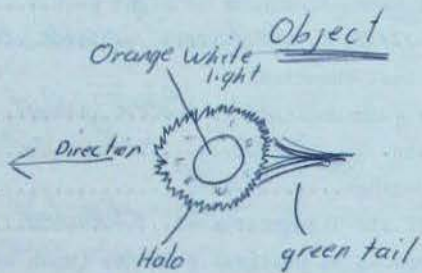 Object
Orange white
light
Direction
Halo
green tail